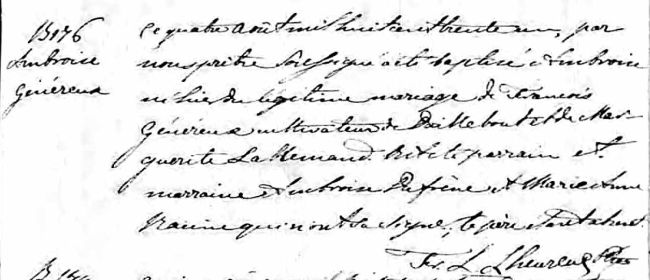 B176
Ambroise
Généreux
Ce quatre août mil huit cent trente un, par
nous prêtre soussigné a été baptisé Ambroise
né hier du légitime mariage de François
Généreux cultivateur de Daillebout et de Mar-
guerite Lallemand. Ont été parrain et
marraine Ambroise Dufrène et Marie Anne
Racine qui n'ont su signer, le père étant absent.
L. Lheureux Ptre